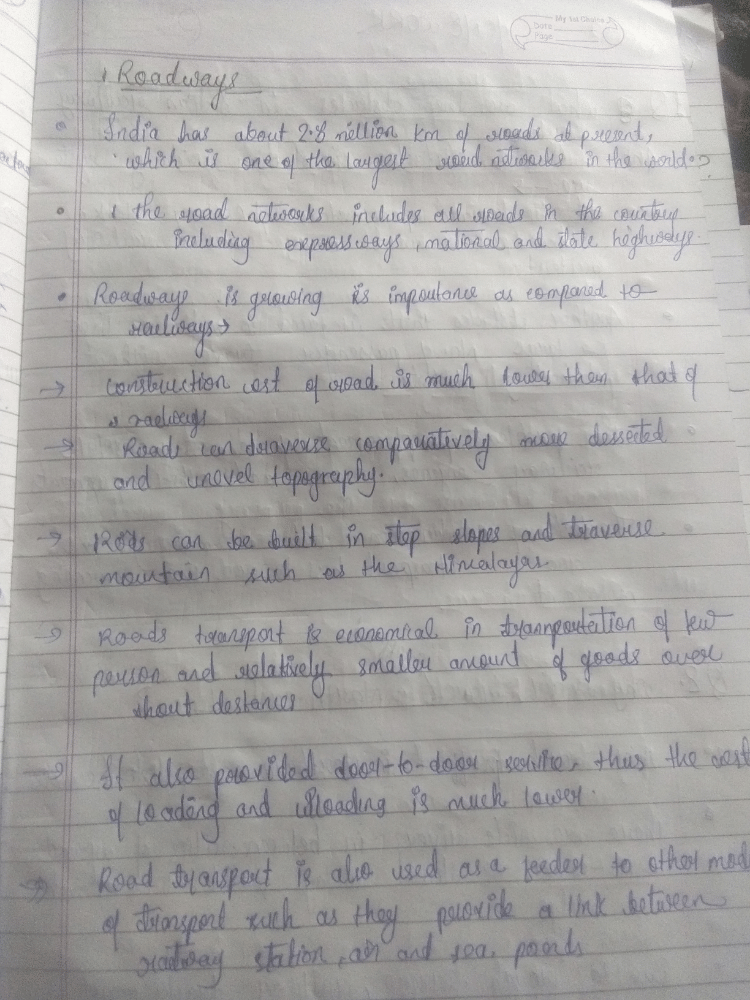 My 1st Choice
Date
Page
Roadways
India has about 2.8 million km of roads at present,
which is one of the largest road networks in the world.
the road networks includes all roads in the country
including expressways, national and state highways.
Roadways is growing is importance as compared to
railways →
→ construction cost of road is much lower then that of
railways
→ Roads can traverse comparatively more dessected
and unevel topography.
→ Rods can be built in step slopes and traverse
mountain such as the Himalayas
→ Roads transport is economical in trannportation of few
person and relatively smaller amount of goods over
short destances
→ It also provided door-to-door service, thus the cost
of loading and uploading is much lower.
→ Road transport is also used as a feeder to other mod
of transport such as they provide a link between
railway station, air and sea